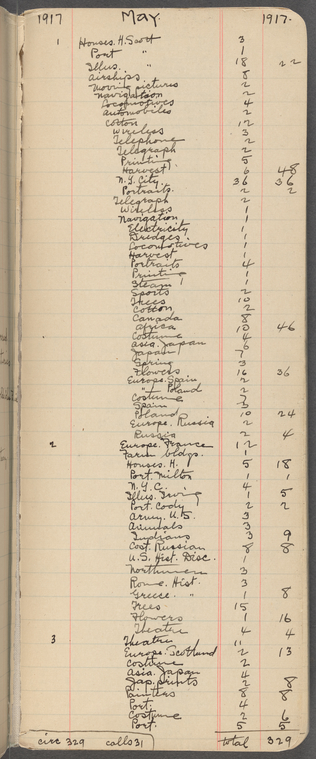 1917 May. 1917.
1 Houses. H. Scott 3
Port " 1
Illus. " 18 22
Airships 8
Moving pictures 2
Navigation 2
Locomotives 4
Automobiles 2
Cotton 12
Wireless 3
Telephone 2
Telegraph 2
Printing 5
Harvest 6 48
N.Y. City 36 36
Portraits. 2 2
Telegraph 2
Wireless 1
Navigation 1
Electricity 1
Bridges 1
Locomotives 1
Harvest 1
Portraits 4
Printing 1
Steam 1
Sports 2
Trees 10
Cotton 2
Canada 8
Africa 10 46
Costume 4
Asia. Japan 6
Japan 7
Spring 3
Flowers 16 36
Europe. Spain 2
" Poland 2
Costume 7
Spain
Poland 10 24
Europe. Russia 2
Russia 2 4
2 Europe. France 12
Farm bldgs. 1
Houses. H. 5 18
Port. Milton 1 1
N.Y.C. 4
Illus. Irving 1 5
Port. Cody 2 2
Army. U.S. 3
Animals 3
Indians 3 9
Cost. Russian 8 8
U.S. Hist. Disc. 1
Northmen 3
Rome. Hist. 3
Greece. " 1 8
Trees 15
Flowers 1 16
Theatre 4 4
3 Theatre 11
Europe. Scotland 2 13
Costume 2
Asia. Japan 4
Jap. prints 2 8
Painters 8 8
Port. 4
Costume 2 6
Port. 5 5
circ 329 calls 31 total 329